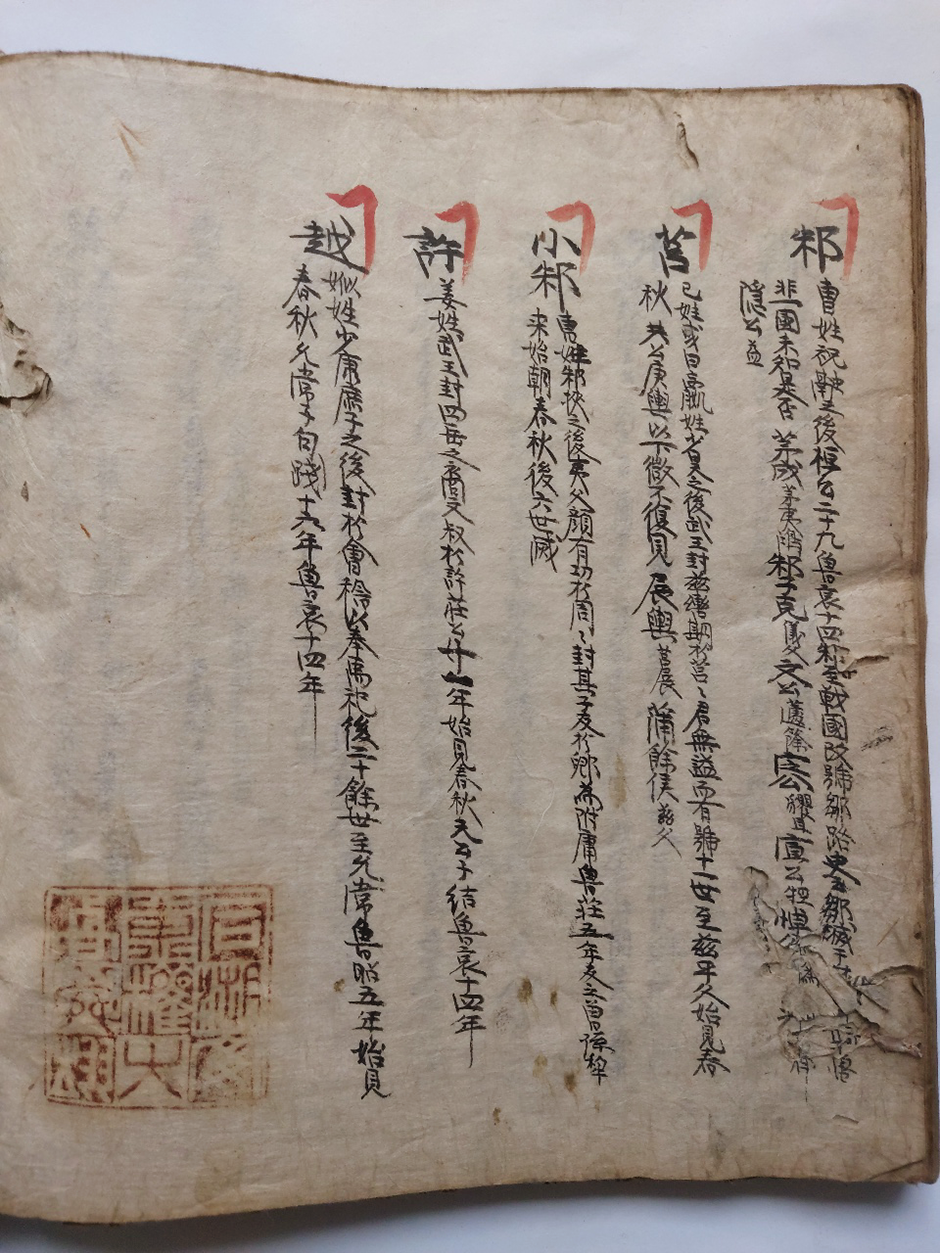 邾
曹姓祝融之後桓公二十九魯哀十四料至戰國改號鄒路史云鄒滅于
非一國未知是否 茅成茅夷鴻邾子克儀父文公蘧篨定公貜且宣公牼悼公
隱公益
莒
己姓或曰嬴姓少昊之後武王封茲輿期於莒〻君無謚而有號十一世至茲平父始見春
秋 共公庚輿以下微不復見 展輿莒展蒲餘侯茲父
小邾
曹姓邾挾之後夷父顏有功於周〻封其子友於郳爲附庸魯莊五年友之曾孫犂
来始朝春秋後六世滅
許
姜姓武王封四岳之裔文叔於許莊公廿一年始見春秋元公子結魯哀十四年
越
姒姓少康庶子之後封於會稽以奉禹祀後二十餘世至允常魯昭五年始見
春秋允常子句踐十六年魯哀十四年